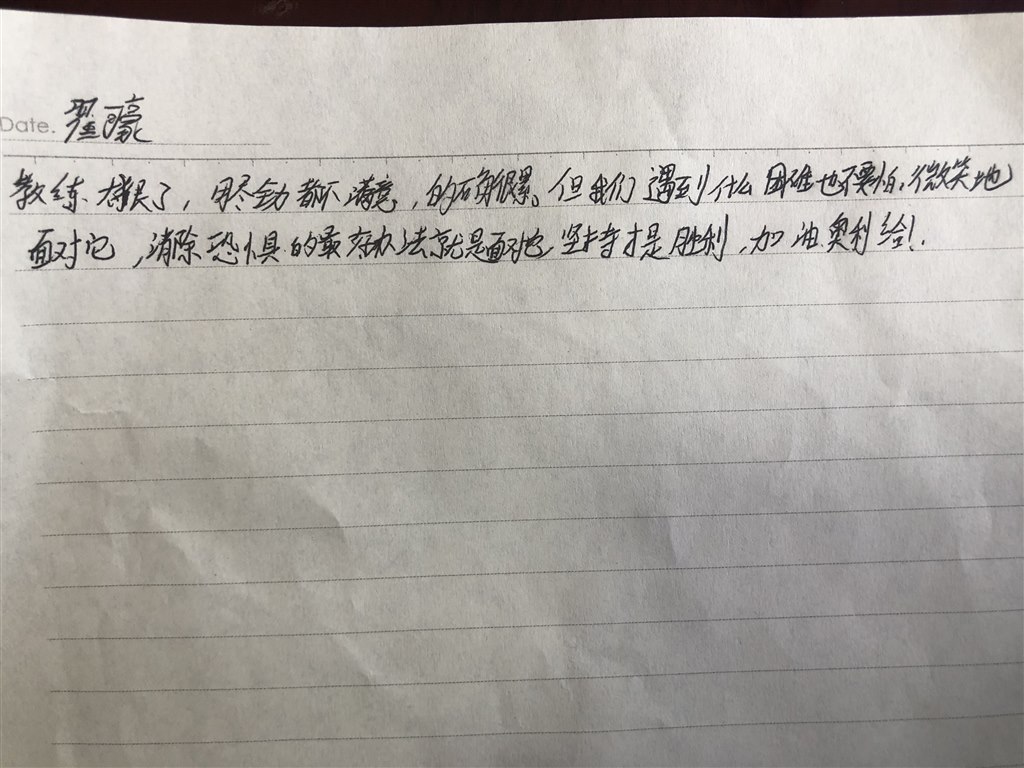 Date. 翟豪
教练太狠了，用尽全力都不满意，的确很累。但我们遇到什么困难也不要怕，微笑地
面对它，消除恐惧的最好办法就是面对它，坚持才是胜利，加油奥利给！